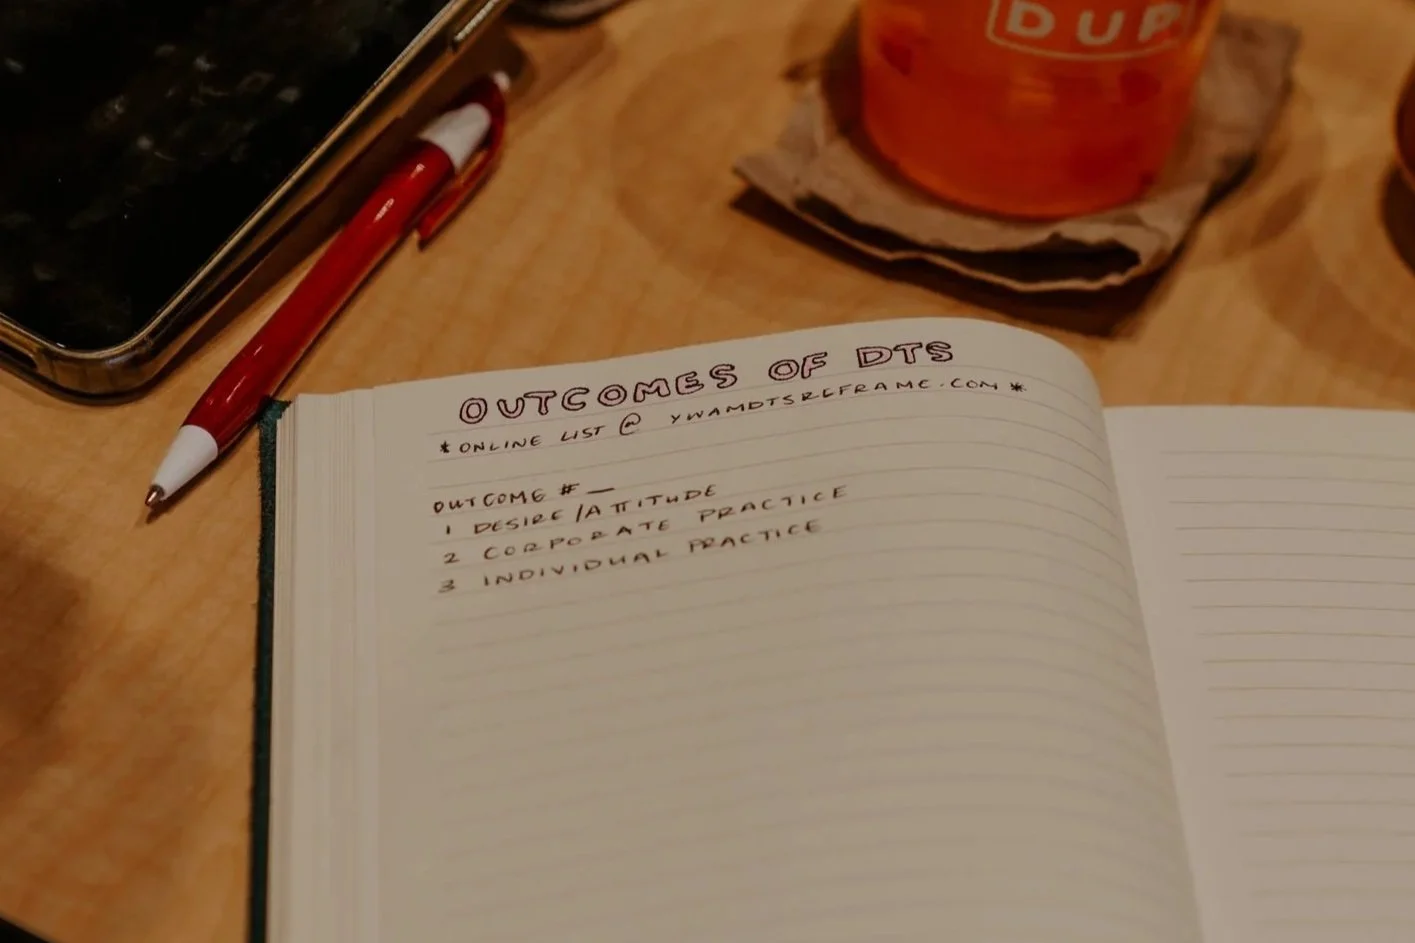 DUP
OUTCOMES OF DTS
*ONLINE LIST @ YWAMDTSREFRAME.COM *
OUTCOME # _
1 DESIRE/ATTITUDE
2 CORPORATE PRACTICE
3 INDIVIDUAL PRACTICE